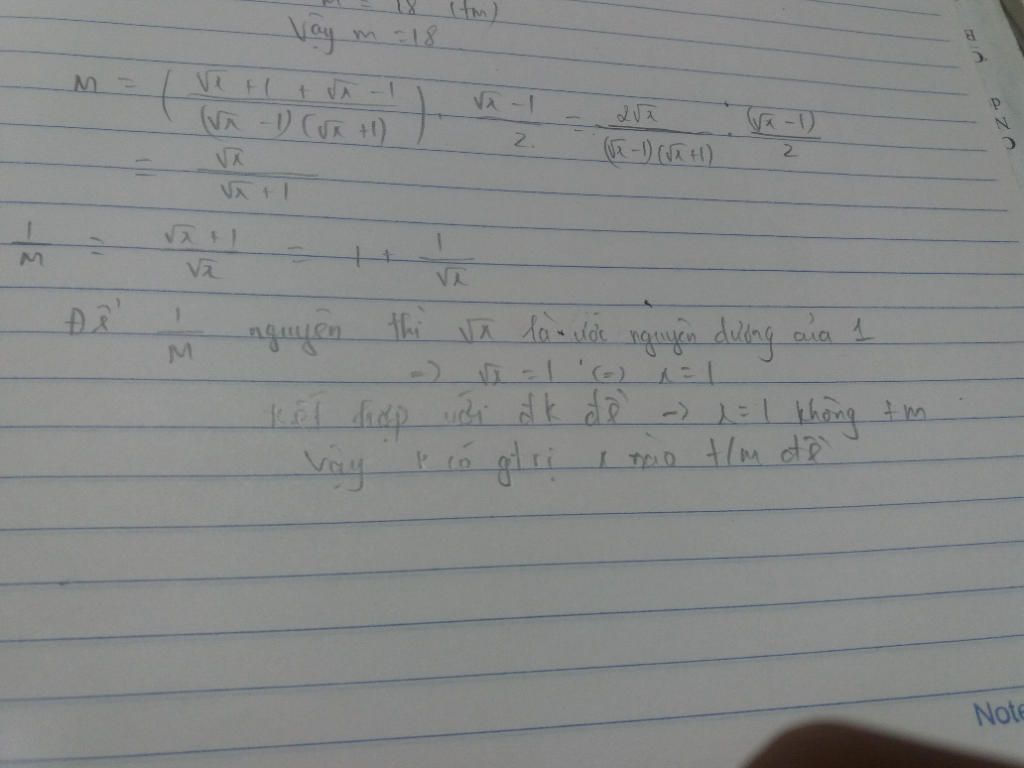 m = 18 (tm)
Vậy m = 18
M = ( (√x + 1 + √x - 1) / ((√x - 1)(√x + 1)) ) . (√x - 1) / 2 = 2√x / ((√x-1)(√x+1)) . (√x-1) / 2
= √x / (√x + 1)
1/M = (√x + 1) / √x = 1 + 1/√x
Để 1/M nguyên thì √x là ước nguyên dương của 1
=> √x = 1 (=) x = 1
kết hợp với đk đề -> x = 1 không tm
Vậy k có gtrị x nào t/m đề
Note